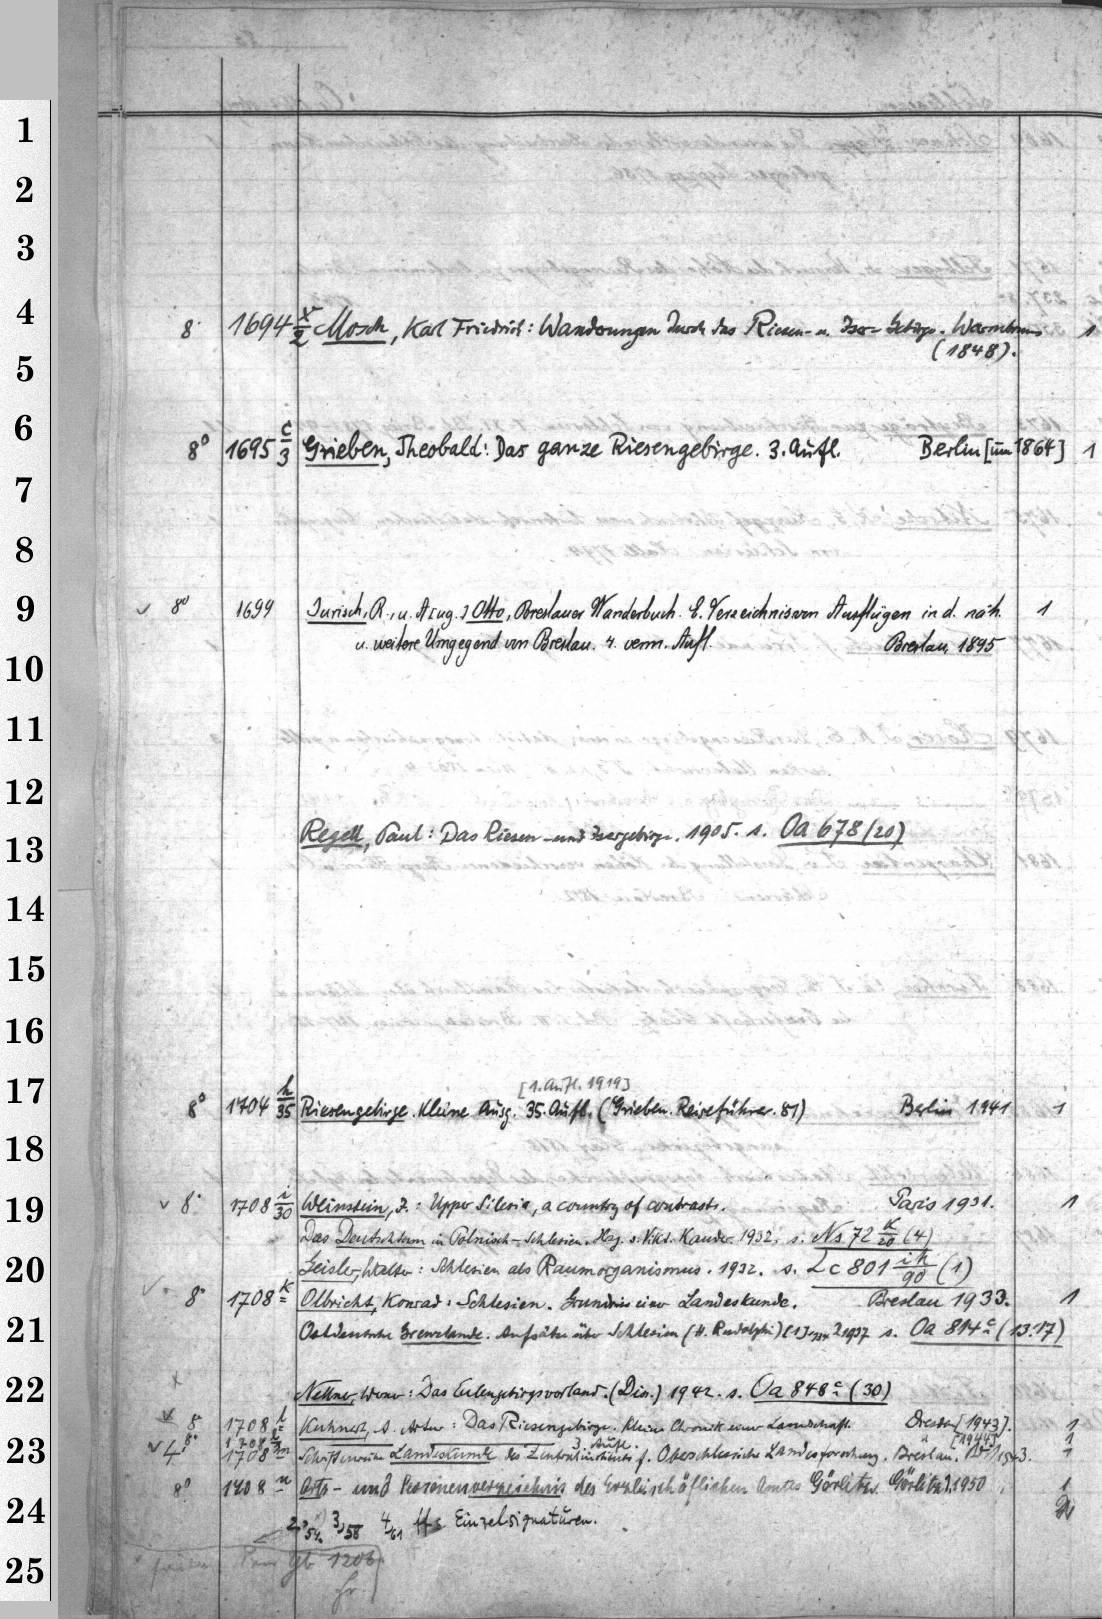 1
2
3
4
8° 1694 x/2 Mosch, Karl Friedrich: Wanderungen durch das Riesen- u. Iser-Gebirge. Warmbrunn 1
(1848).
5
6
8° 1695 c/3 Grieben, Theobald: Das ganze Riesengebirge. 3. Aufl. Berlin [um 1864] 1
7
8
9
8° 1699 Jurisch, R., u. A[ug.] Otto, Breslauer Wanderbuch. E. Verzeichnis von Ausflügen in d. näh. 1
u. weitere Umgegend von Breslau. 4. verm. Aufl. Breslau 1895
10
11
12
Regell, Paul: Das Riesen- und Isergebirge. 1905. s. Oa 678 (20)
13
14
15
16
17
[1. Aufl. 1919]
8° 1704 h/35 Riesengebirge. Kleine Ausg. 35. Aufl. (Grieben. Reiseführer. 81) Berlin 1941 1
18
19
8° 1708 i/30 Weinstein, J.: Upper Silesia, a country of contrasts. Paris 1931. 1
Das Deutschtum in Polnisch-Schlesien. Hrg. v. Vikt. Kauder. 1932. s. Ns 72 k/20 (4)
20
Geisler, Walter: Schlesien als Raumorganismus. 1932. s. Lc 801 ik/90 (1)
8° 1708 k Olbricht, Konrad: Schlesien. Grundriss einer Landeskunde. Breslau 1933. 1
21
Ostdeutsche Grenzlande. Aufsätze über Schlesien (H. Rudolphi) 1937 s. Oa 814 c (13.17)
22
Nettner, : Das Eulengebirgsvorland. (Diss.) 1942. s. Oa 848 c (30)
8° 1708 l Kuhnert, Artur: Das Riesengebirge. Kleine Chronik einer Landschaft. Dresden [1943]. 1
3. Aufl. [1944] 1
23
4° 1708 m Schriftenreihe Landeskunde des Zentralinstituts f. Oberschlesische Landesforschung. Breslau. 1
8° 1708 n Orts- und Personenverzeichnis des Erzbischöflichen Amtes Görlitz. Görlitz 1950 1
24
2,54. 3,58 4,61 ff: Einzelsignaturen.
25
1206